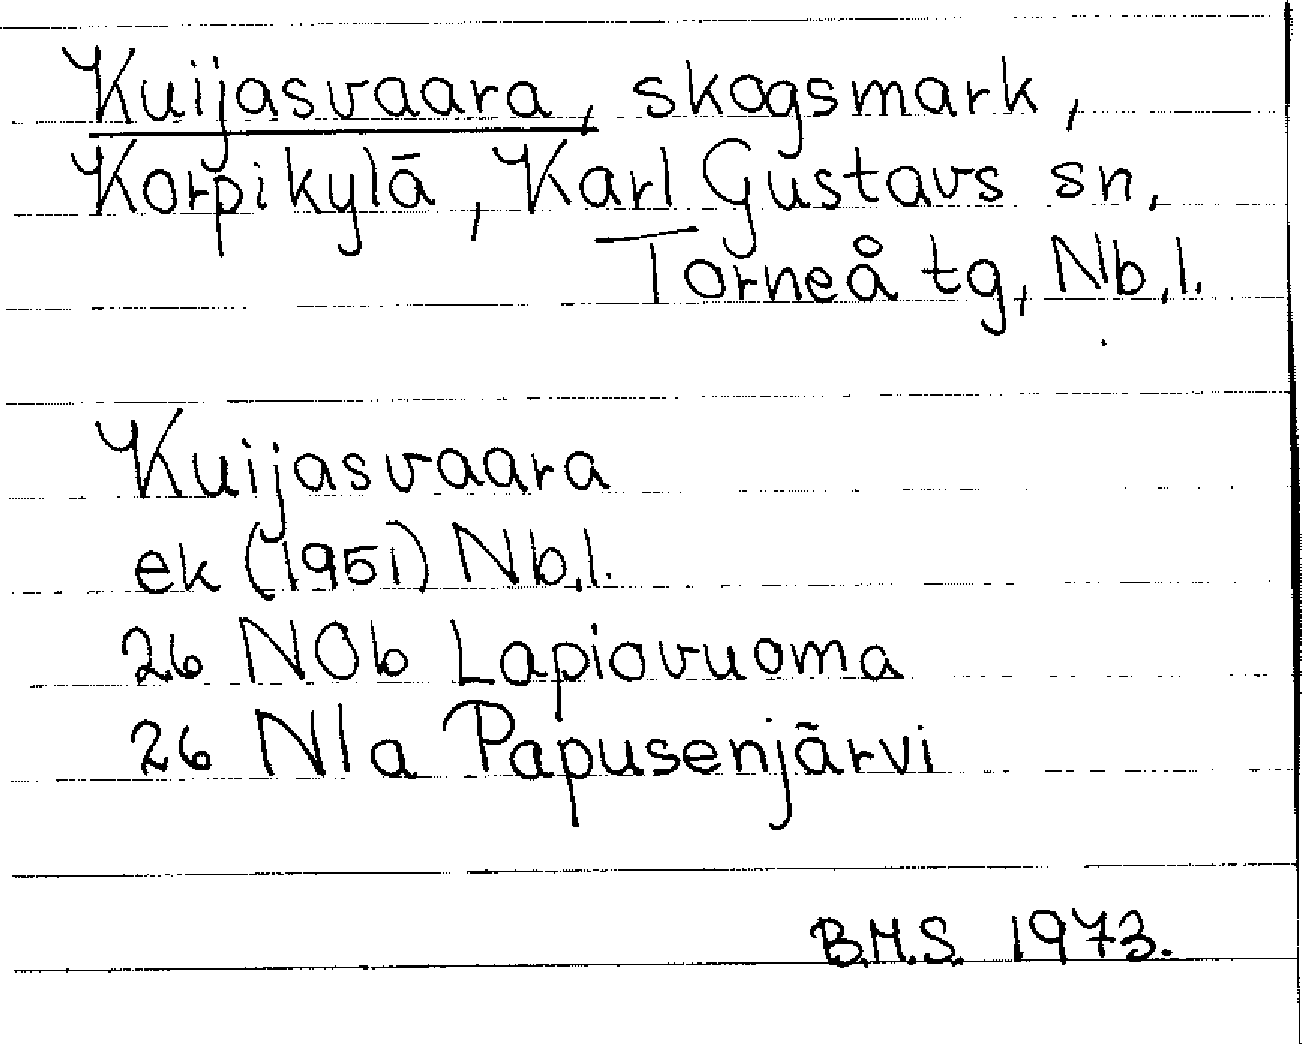 Kuijasvaara, skogsmark,
Korpikylä, Karl Gustavs sn,
Torneå tg, Nb.l.
Kuijasvaara
ek (1951) Nb.l.
26 N0b Lapiovuoma
26 N1a Papusenjärvi
B.M.S. 1973.